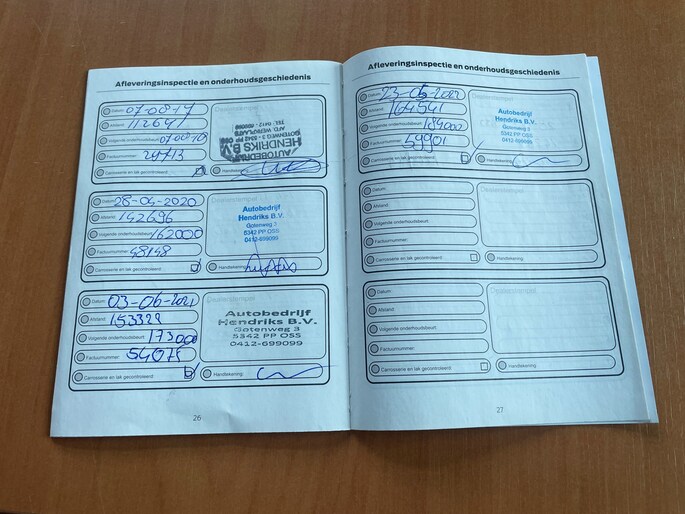 Afleveringsinspectie en onderhoudsgeschiedenis
Datum: 07-08-17
Afstand: 112647
Volgende onderhoudsbeurt: 07-08-18
Factuurnummer: 24713
Carrosserie en lak gecontroleerd:
Handtekening:
AUTOBEDRIJF
HENDRIKS B.V.
AFD. WERKPLAATS
GOTENWEG 3 - 5342 PP OSS
Datum: 28-04-2020
Afstand: 142696
Volgende onderhoudsbeurt: 162000
Factuurnummer: 48148
Carrosserie en lak gecontroleerd:
Handtekening:
Autobedrijf
Hendriks B.V.
Gotenweg 3
5342 PP OSS
0412-699099
Datum: 03-06-2021
Afstand: 153329
Volgende onderhoudsbeurt: 173000
Factuurnummer: 54075
Carrosserie en lak gecontroleerd:
Handtekening:
Dealerstempel
Autobedrijf
Hendriks B.V.
Gotenweg 3
5342 PP OSS
0412-699099
26
Afleveringsinspectie en onderhoudsgeschiedenis
Datum: 23-05-2022
Afstand: 164541
Volgende onderhoudsbeurt: 184000
Factuurnummer: 59901
Carrosserie en lak gecontroleerd:
Handtekening:
Autobedrijf
Hendriks B.V.
Gotenweg 3
5342 PP OSS
0412-699099
Datum:
Afstand:
Volgende onderhoudsbeurt:
Factuurnummer:
Carrosserie en lak gecontroleerd:
Handtekening:
Dealerstempel
Datum:
Afstand:
Volgende onderhoudsbeurt:
Factuurnummer:
Carrosserie en lak gecontroleerd:
Handtekening:
Dealerstempel
27